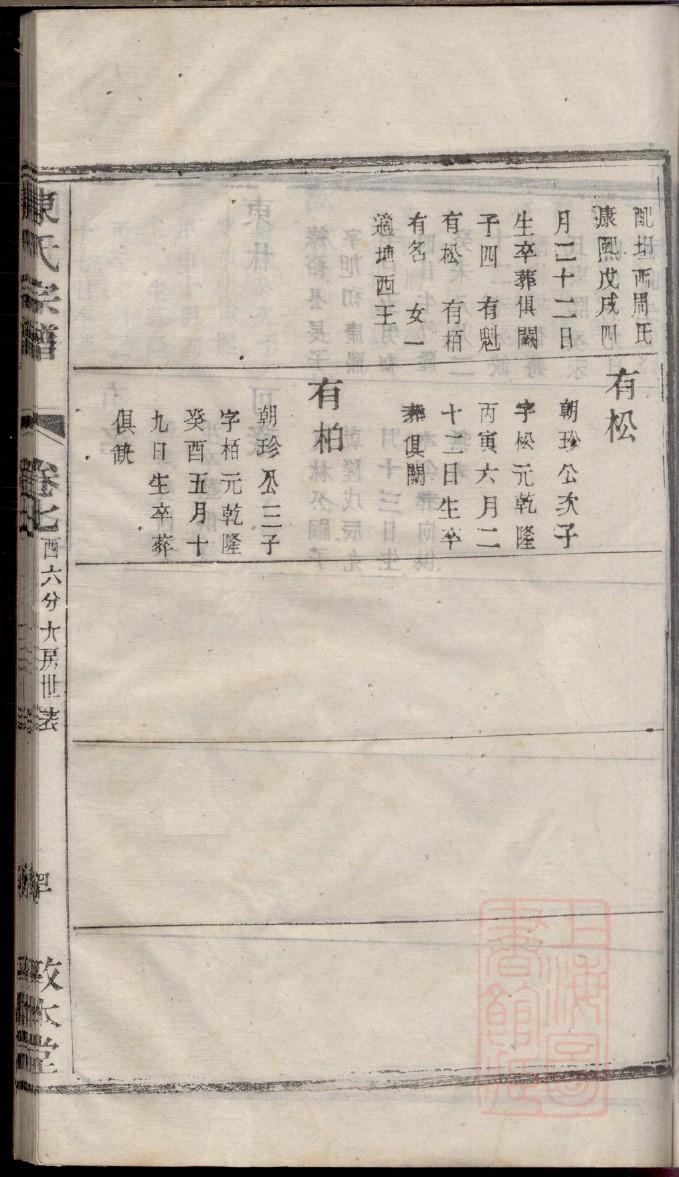 配坦西周氏
康熙戊戌四
月二十二日
生卒葬俱闕
子四 有魁
有松 有栢
有名 女一
適塘西王
有松
朝珍公次子
字松元乾隆
丙寅六月二
十二日生卒
葬俱闕
有柏
朝珍公三子
字柏元乾隆
癸酉五月十
九日生卒葬
俱缺
陳氏宗譜
卷七
西六分大房世表
敦本堂
上海圖
書館藏